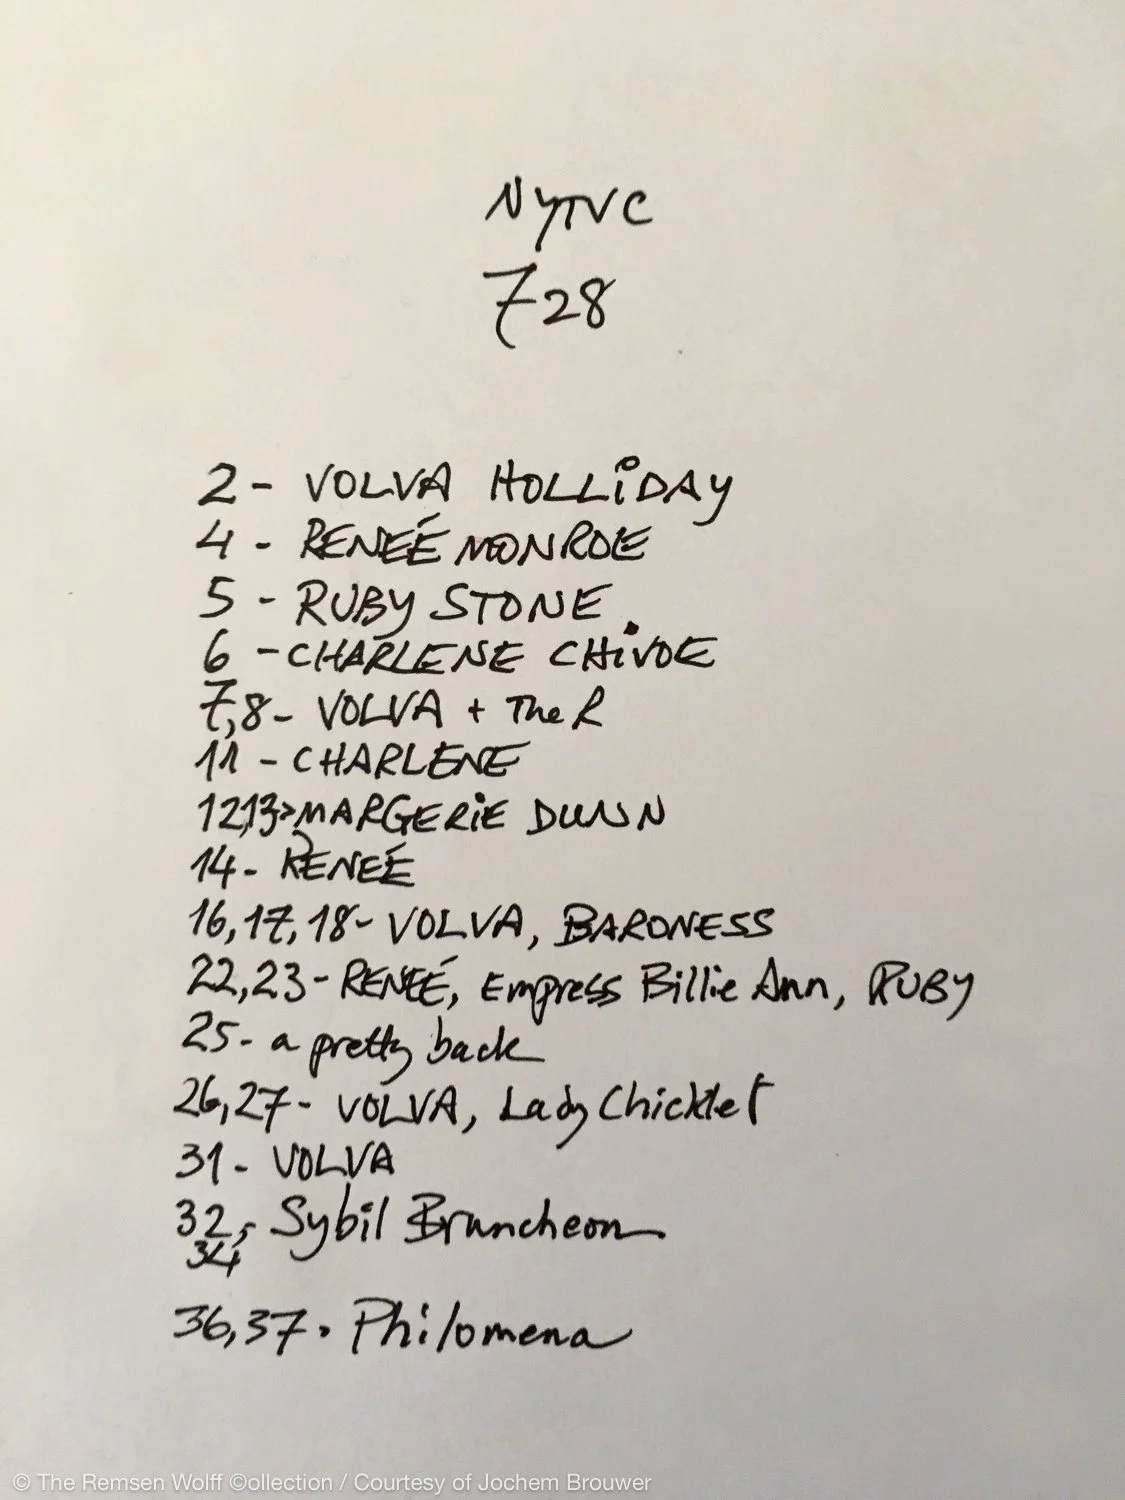 NYTVC
728
2 - VOLVA HOLLiDAY
4 - RENEÉ MONROE
5 - RUBY STONE
6 - CHARLENE CHiVOE
7,8 - VOLVA + The R
11 - CHARLENE
12,13> MARGERiE DUNN
14 - RENEÉ
16,17,18 - VOLVA, BARONESS
22,23 - RENEÉ, Empress Billie Ann, RUBY
25 - a pretty back
26,27 - VOLVA, Lady Chicklet
31 - VOLVA
32, Sybil Bruncheon
34
36,37. Philomena
© The Remsen Wolff ©ollection / Courtesy of Jochem Brouwer